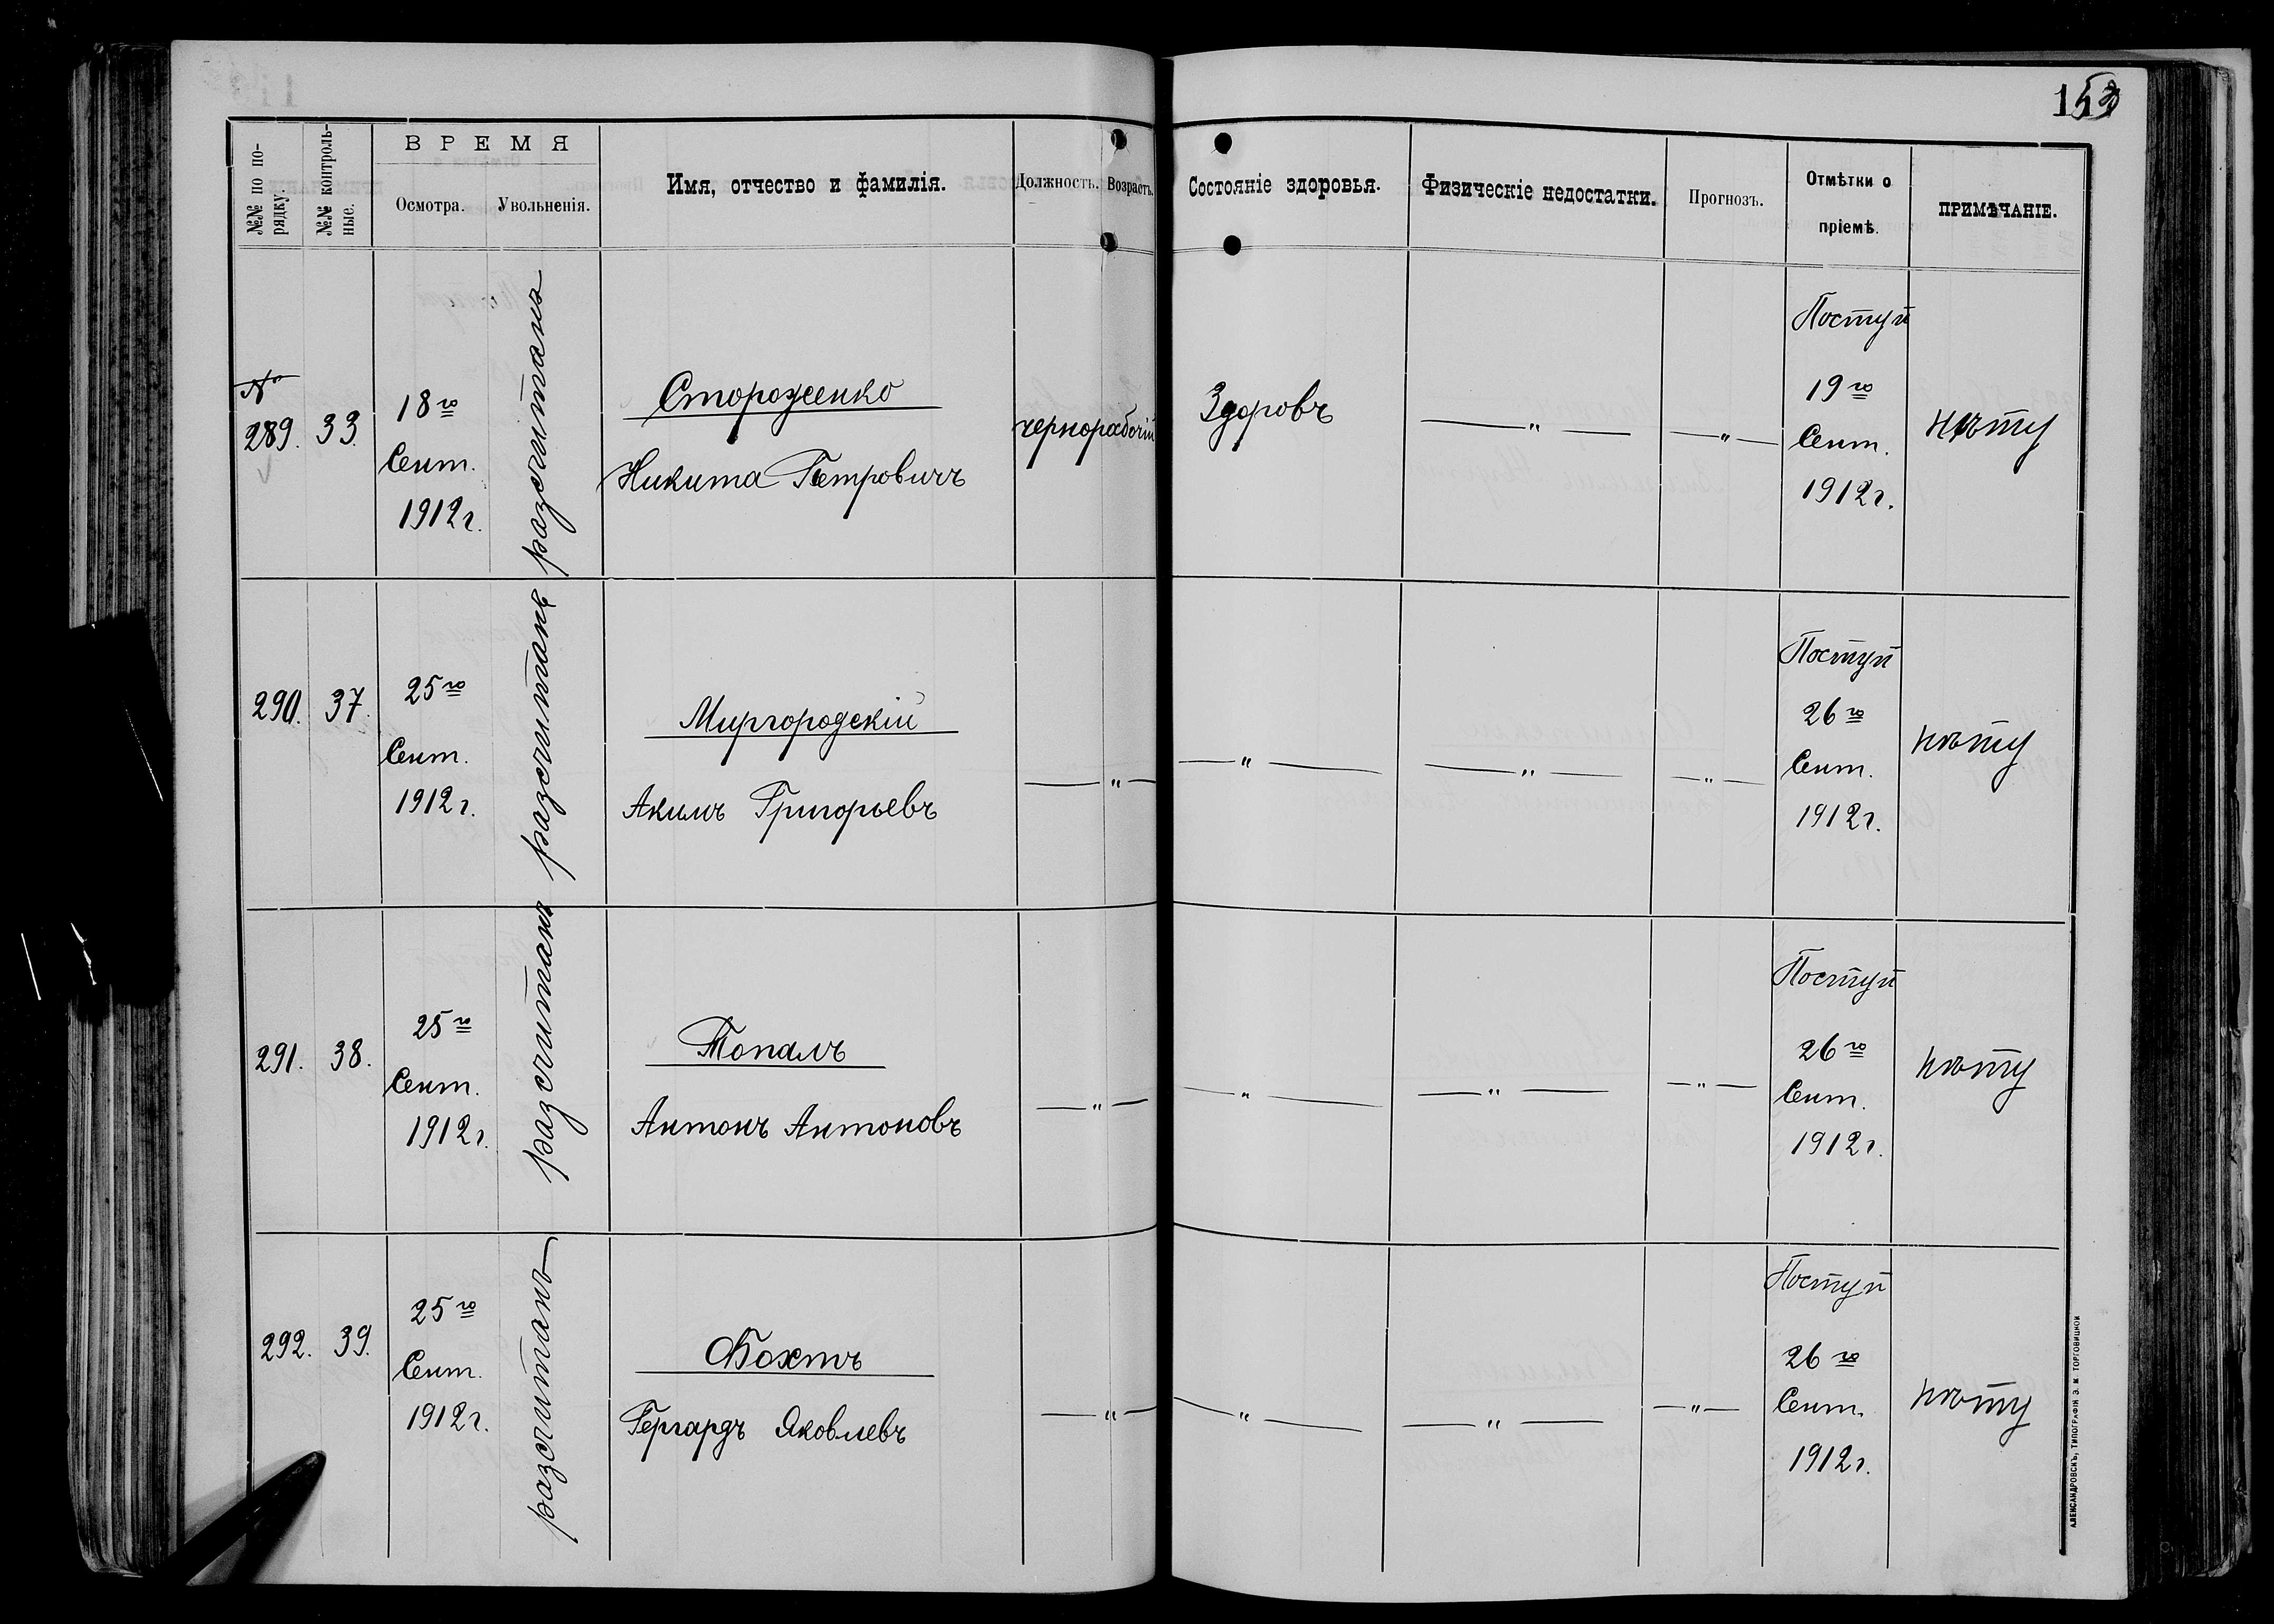 153
№№ по по-
рядку.
№№ контроль-
ные.
ВРЕМЯ
Осмотра.
Увольненія.
Имя, отчество и фамилія.
Должность.
Возрастъ.
Состояніе здоровья.
Физическіе недостатки.
Прогнозъ.
Отмѣтки о
пріемѣ.
ПРИМѢЧАНІЕ.
№
289.
33.
18го
Сент.
1912 г.
разсчитанъ
Стороженко
Никита Петровичъ
чернорабочій
Здоровъ
— " —
— " —
Поступ
19го
Сент.
1912 г.
нѣту
290.
37.
25го
Сент.
1912 г.
разсчитанъ
Миргородскій
Акимъ Григорьевъ
— " —
— " —
— " —
— " —
Поступ
26го
Сент.
1912 г.
нѣту
291.
38.
25го
Сент.
1912 г.
разсчитанъ
Топалъ
Антонъ Антоновъ
— " —
— " —
— " —
— " —
Поступ
26го
Сент.
1912 г.
нѣту
292.
39.
25го
Сент.
1912 г.
разсчитанъ
Бохтъ
Гергардъ Яковлевъ
— " —
— " —
— " —
— " —
Поступ
26го
Сент.
1912 г.
нѣту
АЛЕКСАНДРОВСКЪ, ТИПОГРАФІЯ Э. М. ТОРГОВИЦКОЙ